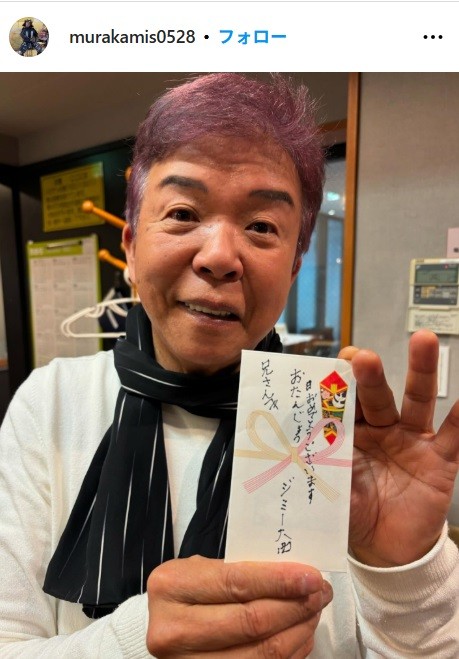 murakamis0528 • フォロー
兄さん
おたんじょう
日おめでとうございます
ジミー大西